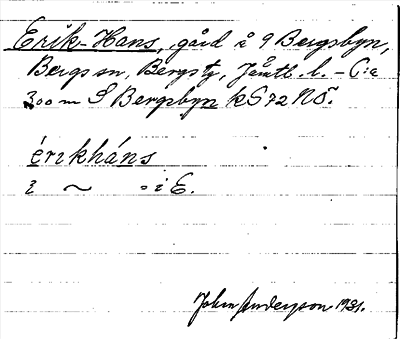 Erik-Hans, gård å 9 Bergsbyn,
Bergs sn, Bergs tg, Jämtl. l. - C:a
300 m S Bergsbyn kS 72 NÖ.
érikháns
i ~ = i E.
John Anderson 1931.